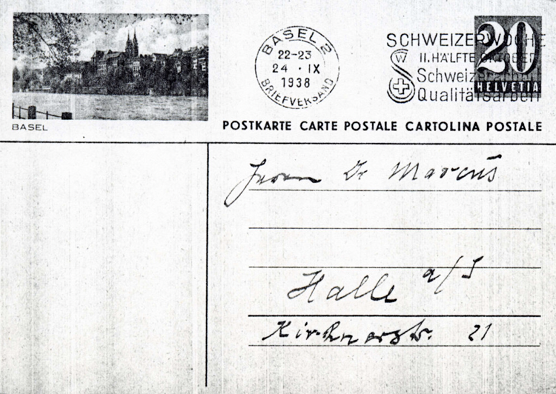 BASEL 2
22-23
24 · IX
1938
BRIEFVERSAND
SCHWEIZERWOCHE
II. HÄLFTE OKTOBER
W
Schweizerarbeit
Qualitätsarbeit
20
HELVETIA
BASEL
POSTKARTE CARTE POSTALE CARTOLINA POSTALE
Herrn Dr Marcus
Halle a/S
Kirchnerstr. 21